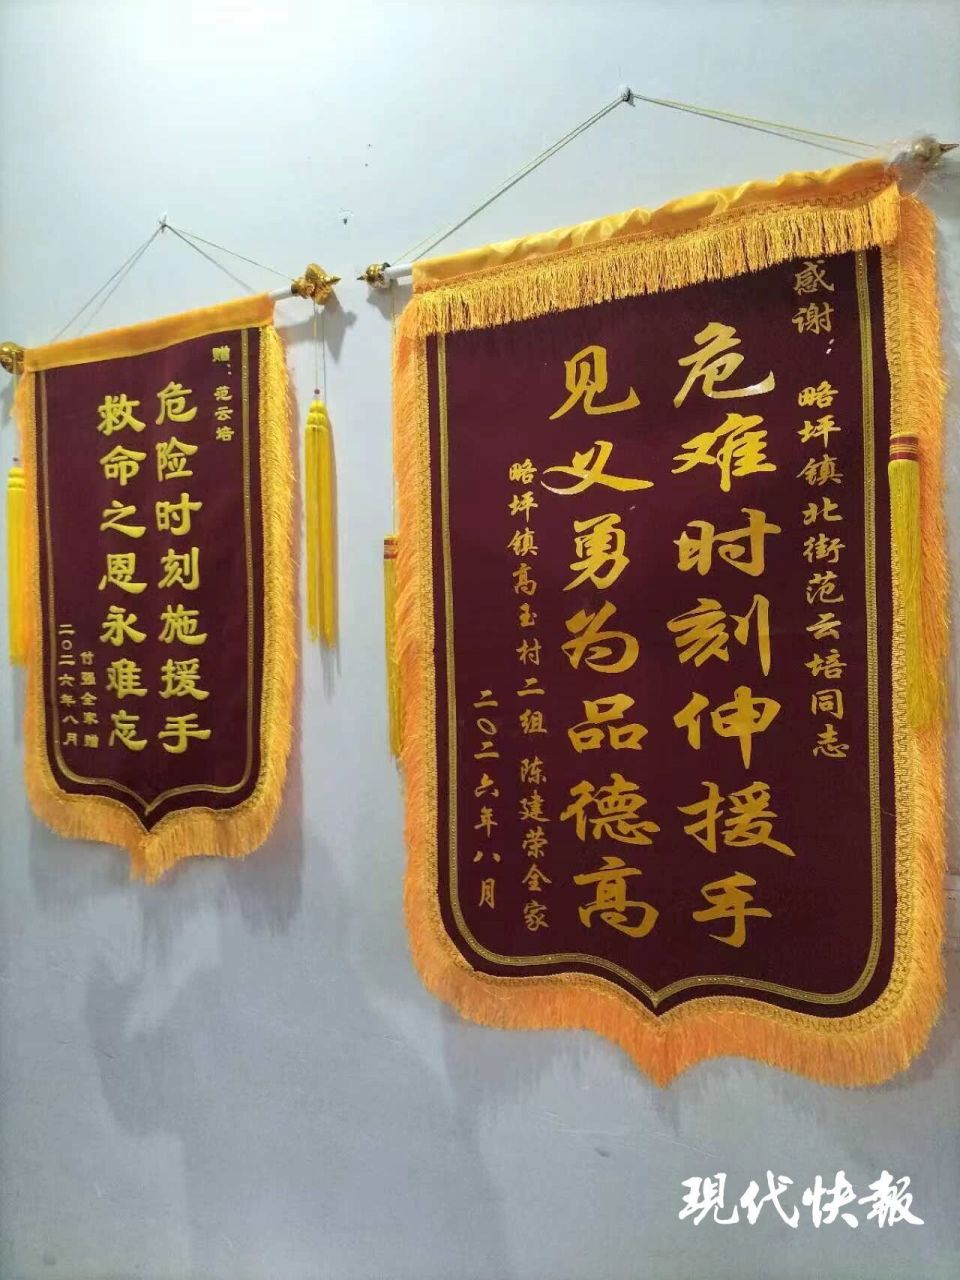 赠：范云培
危险时刻施援手
救命之恩永难忘
付强全家赠
二〇二六年八月
感谢：略坪镇北街范云培同志
危难时刻伸援手
见义勇为品德高
略坪镇高玉村二组 陈建荣全家
二〇二六年八月
現代快報